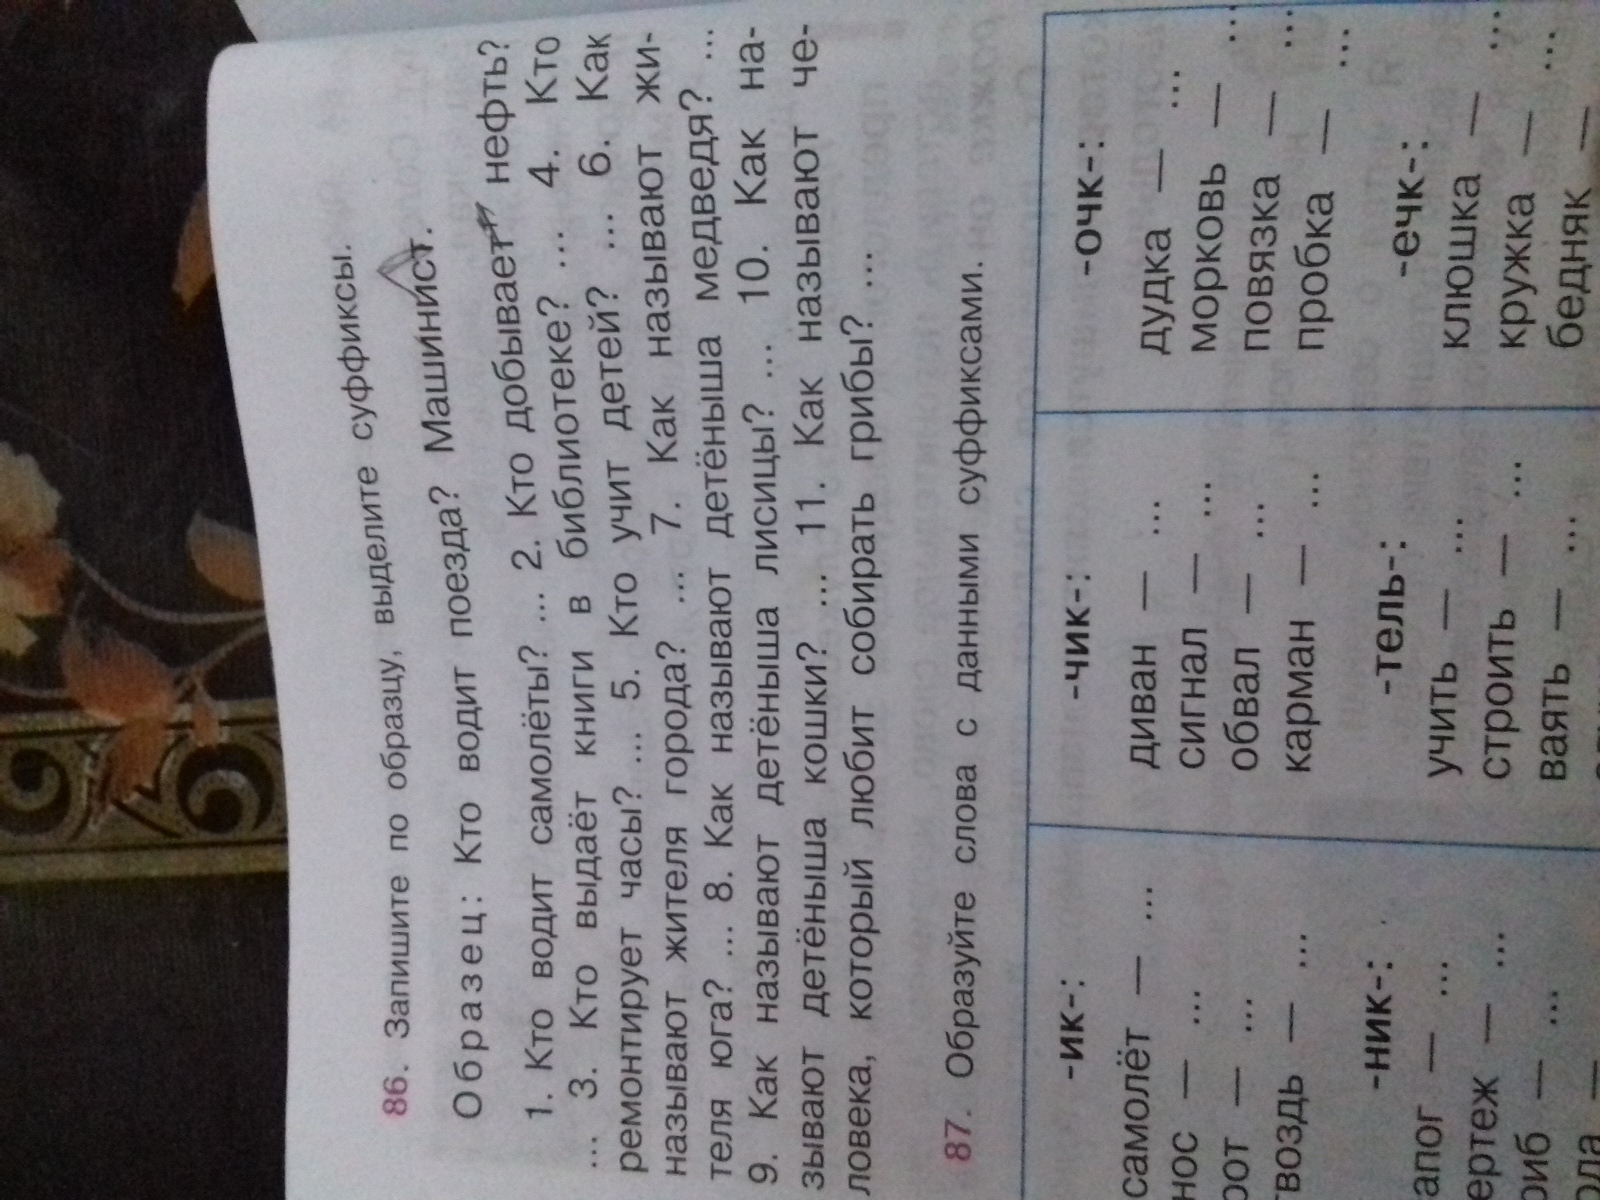 86. Запишите по образцу, выделите суффиксы.
Образец: Кто водит поезда? Машинист.
1. Кто водит самолёты? ... 2. Кто добывает нефть?
... 3. Кто выдаёт книги в библиотеке? ... 4. Кто
ремонтирует часы? ... 5. Кто учит детей? ... 6. Как
называют жителя города? ... 7. Как называют жи-
теля юга? ... 8. Как называют детёныша медведя? ...
9. Как называют детёныша лисицы? ... 10. Как на-
зывают детёныша кошки? ... 11. Как называют че-
ловека, который любит собирать грибы? ...
87. Образуйте слова с данными суффиксами.
-ик-:
самолёт — ...
нос — ...
рот — ...
гвоздь — ...
-ник-:
апог — ...
ертеж — ...
риб — ...
-чик-:
диван — ...
сигнал — ...
обвал — ...
карман — ...
-тель-:
учить — ...
строить — ...
ваять — ...
-очк-:
дудка — ...
морковь — ...
повязка — ...
пробка — ...
-ечк-:
клюшка — ...
кружка — ...
бедняк —